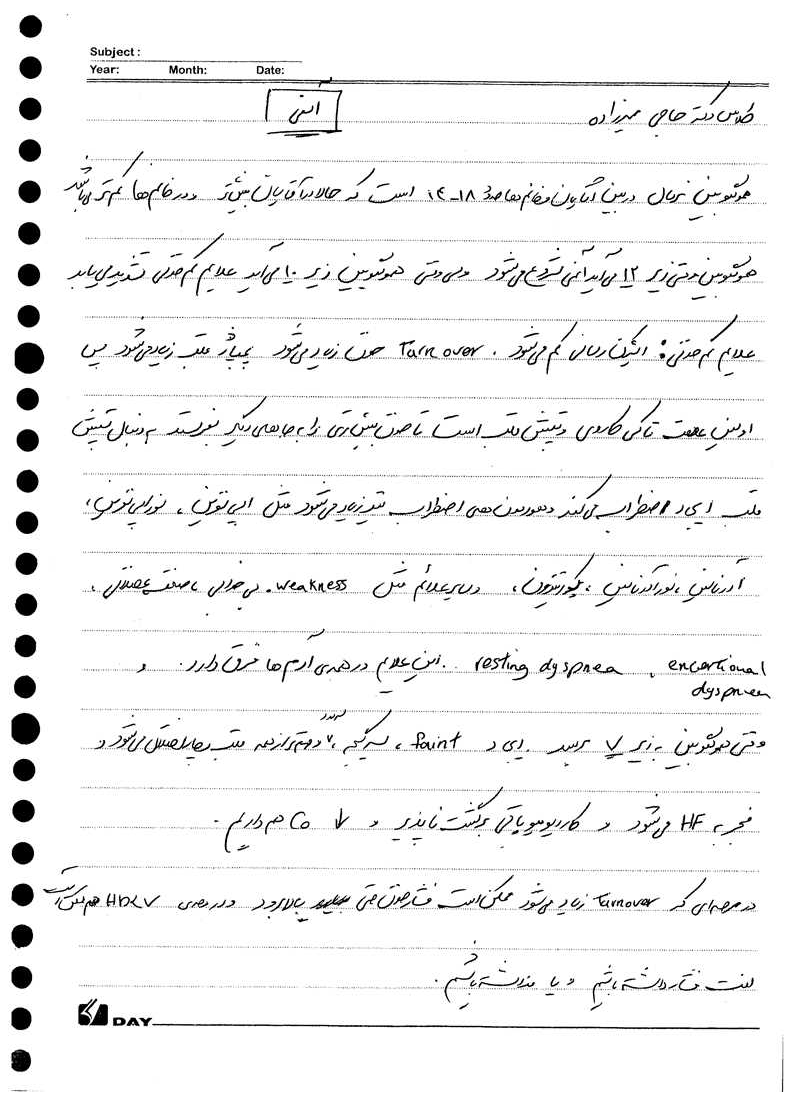 Subject:
Year: Month: Date:
آنمی
کلاس دکتر حاجی میرزاده
هموگلوبین نرمال در بین آقایان و خانم‌ها حدود ۱۸-۱۴ است که حالا در آقایان بیشتر و در خانم‌ها کم‌تر می‌باشد
هموگلوبین وقتی زیر ۱۲ می‌آید آنمی شروع می‌شود ولی وقتی هموگلوبین زیر ۱۰ می‌آید علایم کم خونی تشدید می‌یابد
علایم کم خونی: اکسیژن رسانی کم می‌شود. Turnover خون زیاد می‌شود پمپاژ قلب زیاد می‌شود پس
اولین علامت تاکی کاردی و تپش قلب است تا خون بیش‌تری را به جاهای دیگر بفرستد به دنبال تپش
قلب ایجاد اضطراب می‌کند و هورمون‌های اضطراب نیز زیاد می‌شود مثل اپی نفرین، نوراپی نفرین،
آدرنالین، نورآدرنالین، کورتیزون، و سایر علائم مثل weakness. بی حالی، ضعف عضلانی،
resting dyspnea، encertional
dyspnea
. این علایم در همه‌ی آدم ها فرق دارد. و
وقتی هموگلوبین به زیر ۷ برسد. ایجاد faint، سرگیجه، سردرد و مهم‌تر از همه قلب دچار اختلال می‌شود و
منجر به HF می‌شود و کاردیومیوپاتی برگشت ناپذیر و ↓ CO هم داریم.
در مرحله‌ای که Turnover زیاد می‌شود ممکن است فشار خون حتی بالا برود و در مرحله‌ی Hb<۷ هم ممکن است
افت فشار داشته باشیم و یا نداشته باشیم.
DAY